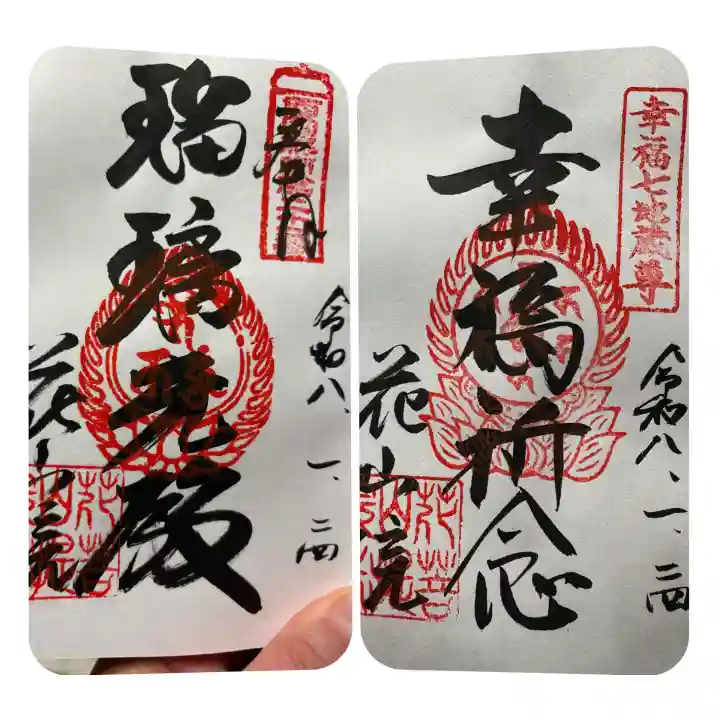 奉拝
令和八、一、二四
瑠璃光殿
花山院
幸福七地蔵尊
令和八、一、二四
幸福祈念
花山院